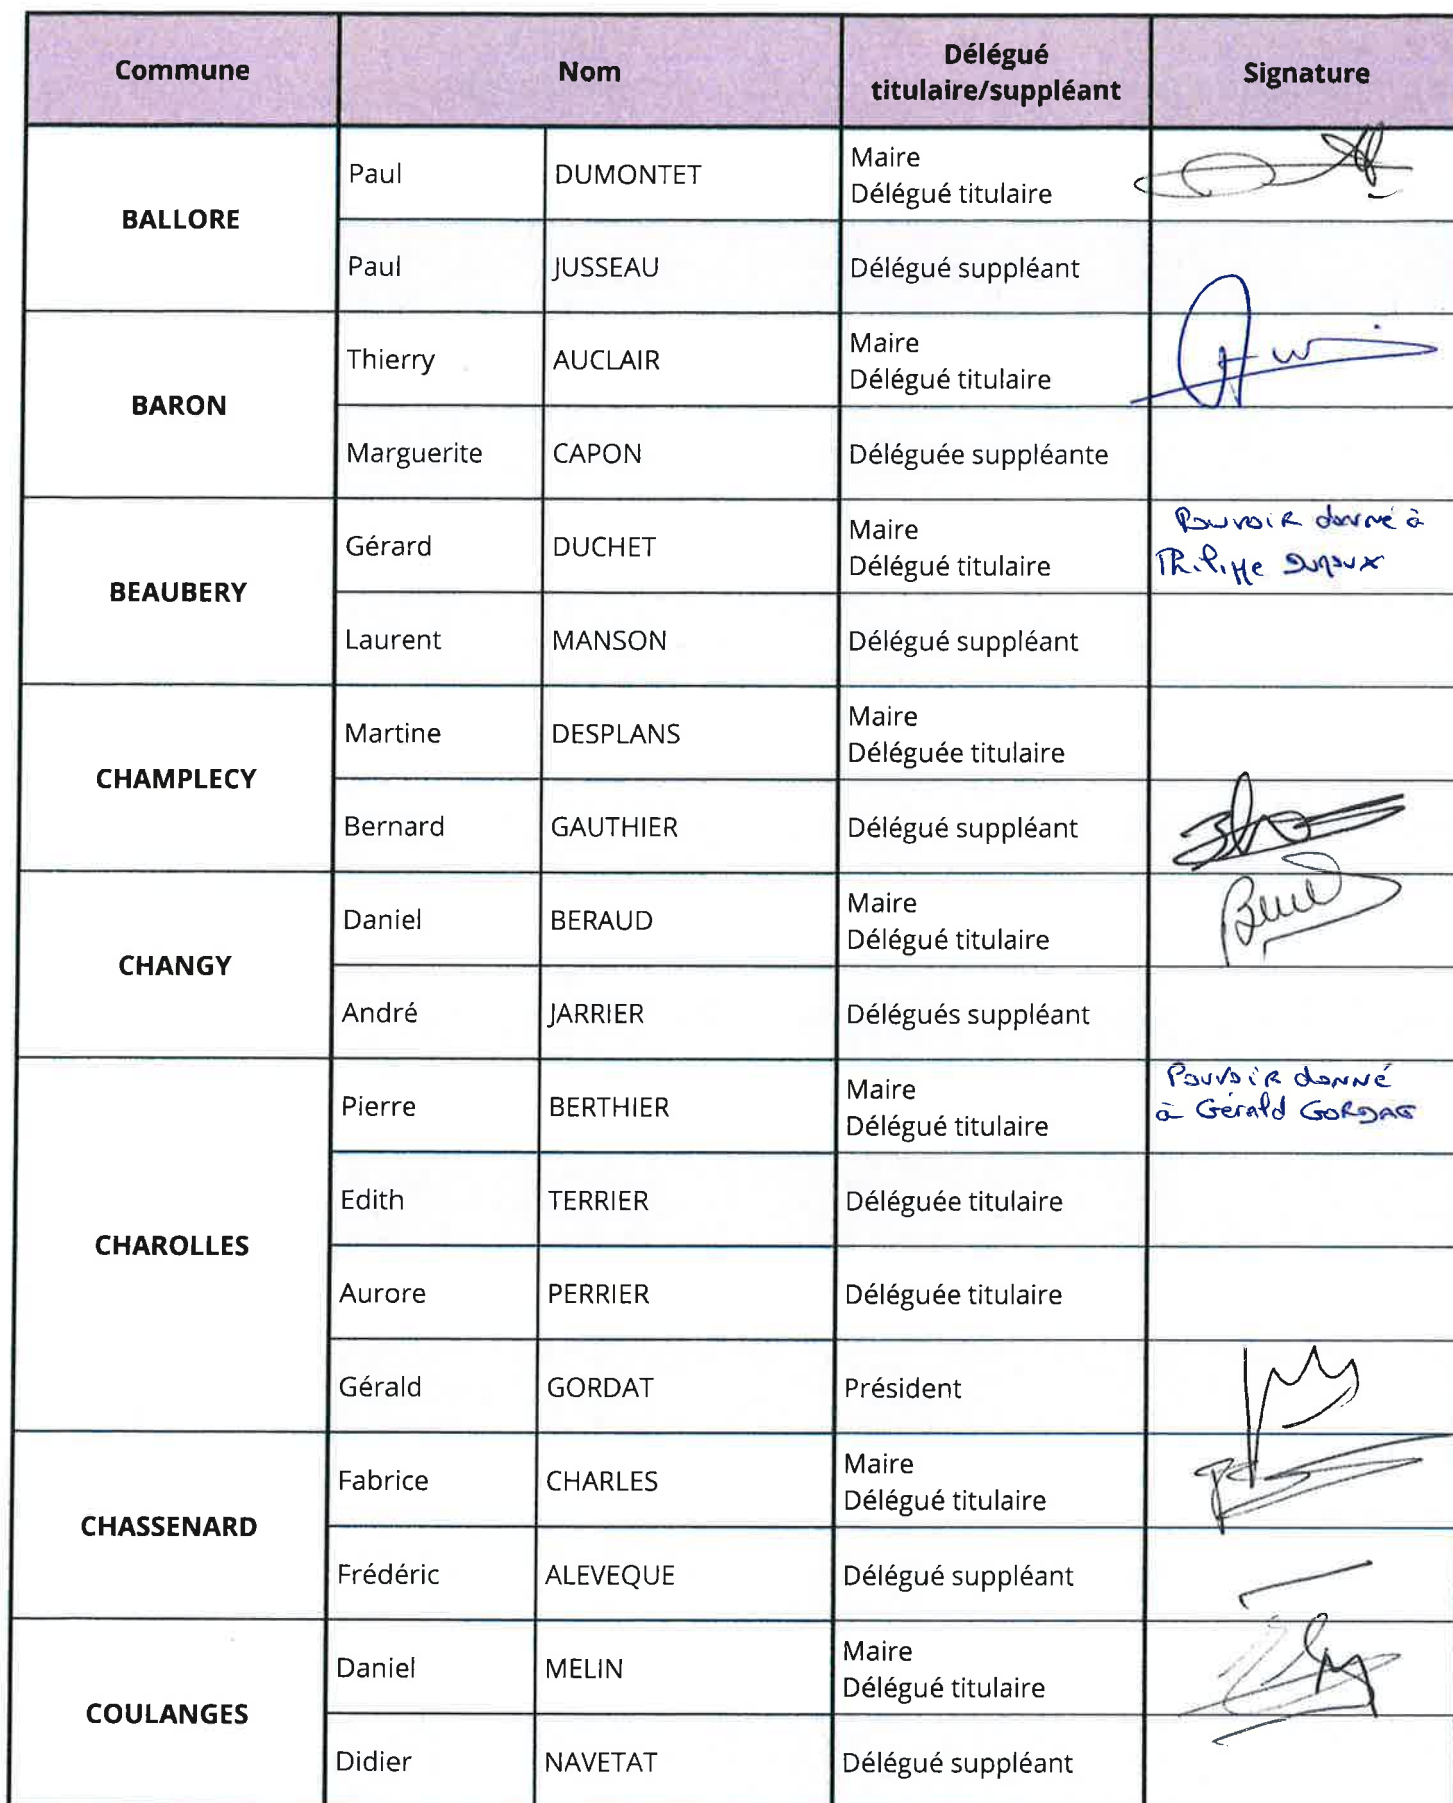 Commune Nom Délégué titulaire/suppléant Signature
BALLORE
Paul DUMONTET Maire
Délégué titulaire
Paul JUSSEAU Délégué suppléant
BARON
Thierry AUCLAIR Maire
Délégué titulaire
Marguerite CAPON Déléguée suppléante
BEAUBERY
Gérard DUCHET Maire
Délégué titulaire
Pouvoir donné à
Philippe
Laurent MANSON Délégué suppléant
CHAMPLECY
Martine DESPLANS Maire
Déléguée titulaire
Bernard GAUTHIER Délégué suppléant
CHANGY
Daniel BERAUD Maire
Délégué titulaire
André JARRIER Délégués suppléant
CHAROLLES
Pierre BERTHIER Maire
Délégué titulaire
Pouvoir donné
à Gérald GORDAT
Edith TERRIER Déléguée titulaire
Aurore PERRIER Déléguée titulaire
Gérald GORDAT Président
CHASSENARD
Fabrice CHARLES Maire
Délégué titulaire
Frédéric ALEVEQUE Délégué suppléant
COULANGES
Daniel MELIN Maire
Délégué titulaire
Didier NAVETAT Délégué suppléant